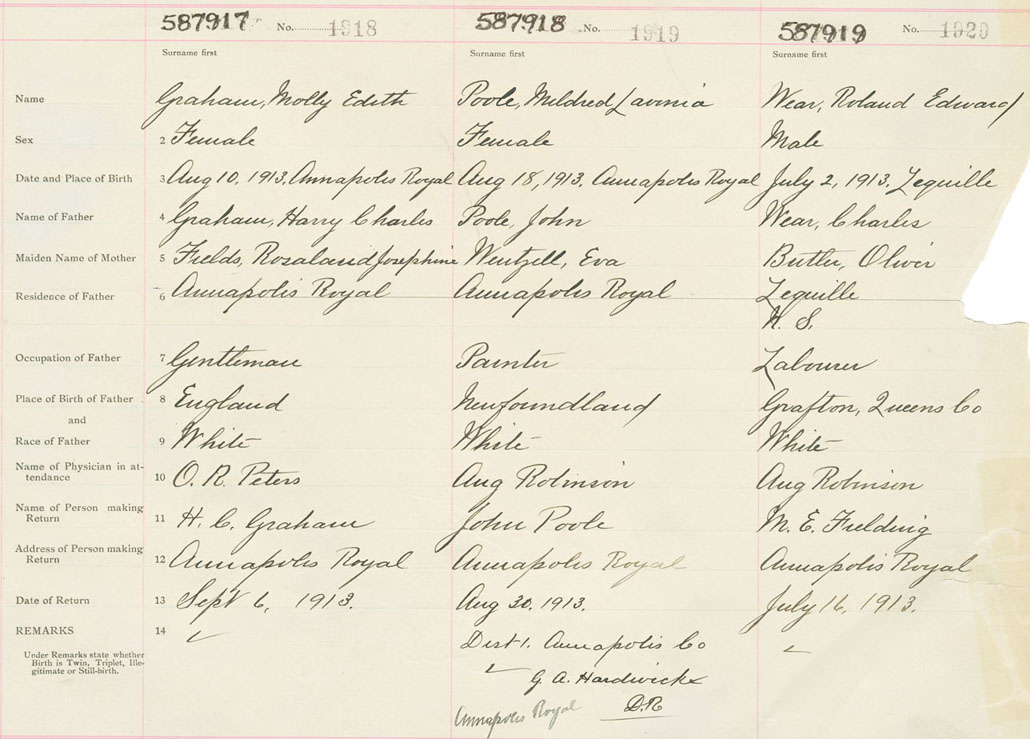 587917 No. 1918 587918 No. 1919 587919 No. 1920
Surname first Surname first Surname first
Name Graham, Molly Edith Poole, Mildred Lavinia Wear, Roland Edward
Sex 2 Female Female Male
Date and Place of Birth 3 Aug 10, 1913, Annapolis Royal Aug 18, 1913. Annapolis Royal July 2, 1913. Lequille
Name of Father 4 Graham, Harry Charles Poole, John Wear, Charles
Maiden Name of Mother 5 Fields, Rosaland Josephine Wentzell, Eva Butler, Oliver
Residence of Father 6 Annapolis Royal Annapolis Royal Lequille
N. S.
Occupation of Father 7 Gentleman Painter Labourer
Place of Birth of Father 8 England Newfoundland Grafton, Queens Co
and
Race of Father 9 White White White
Name of Physician in at-
tendance 10 O. R. Peters Aug Robinson Aug Robinson
Name of Person making
Return 11 H. C. Graham John Poole M. E. Fielding
Address of Person making
Return 12 Annapolis Royal Annapolis Royal Annapolis Royal
Date of Return 13 Sept 6, 1913. Aug 30. 1913. July 16, 1913.
REMARKS 14
Dist 1. Annapolis Co
Under Remarks state whether
Birth is Twin, Triplet, Ille-
gitimate or Still-birth.
G. A. Hardwicke
D.R
Annapolis Royal